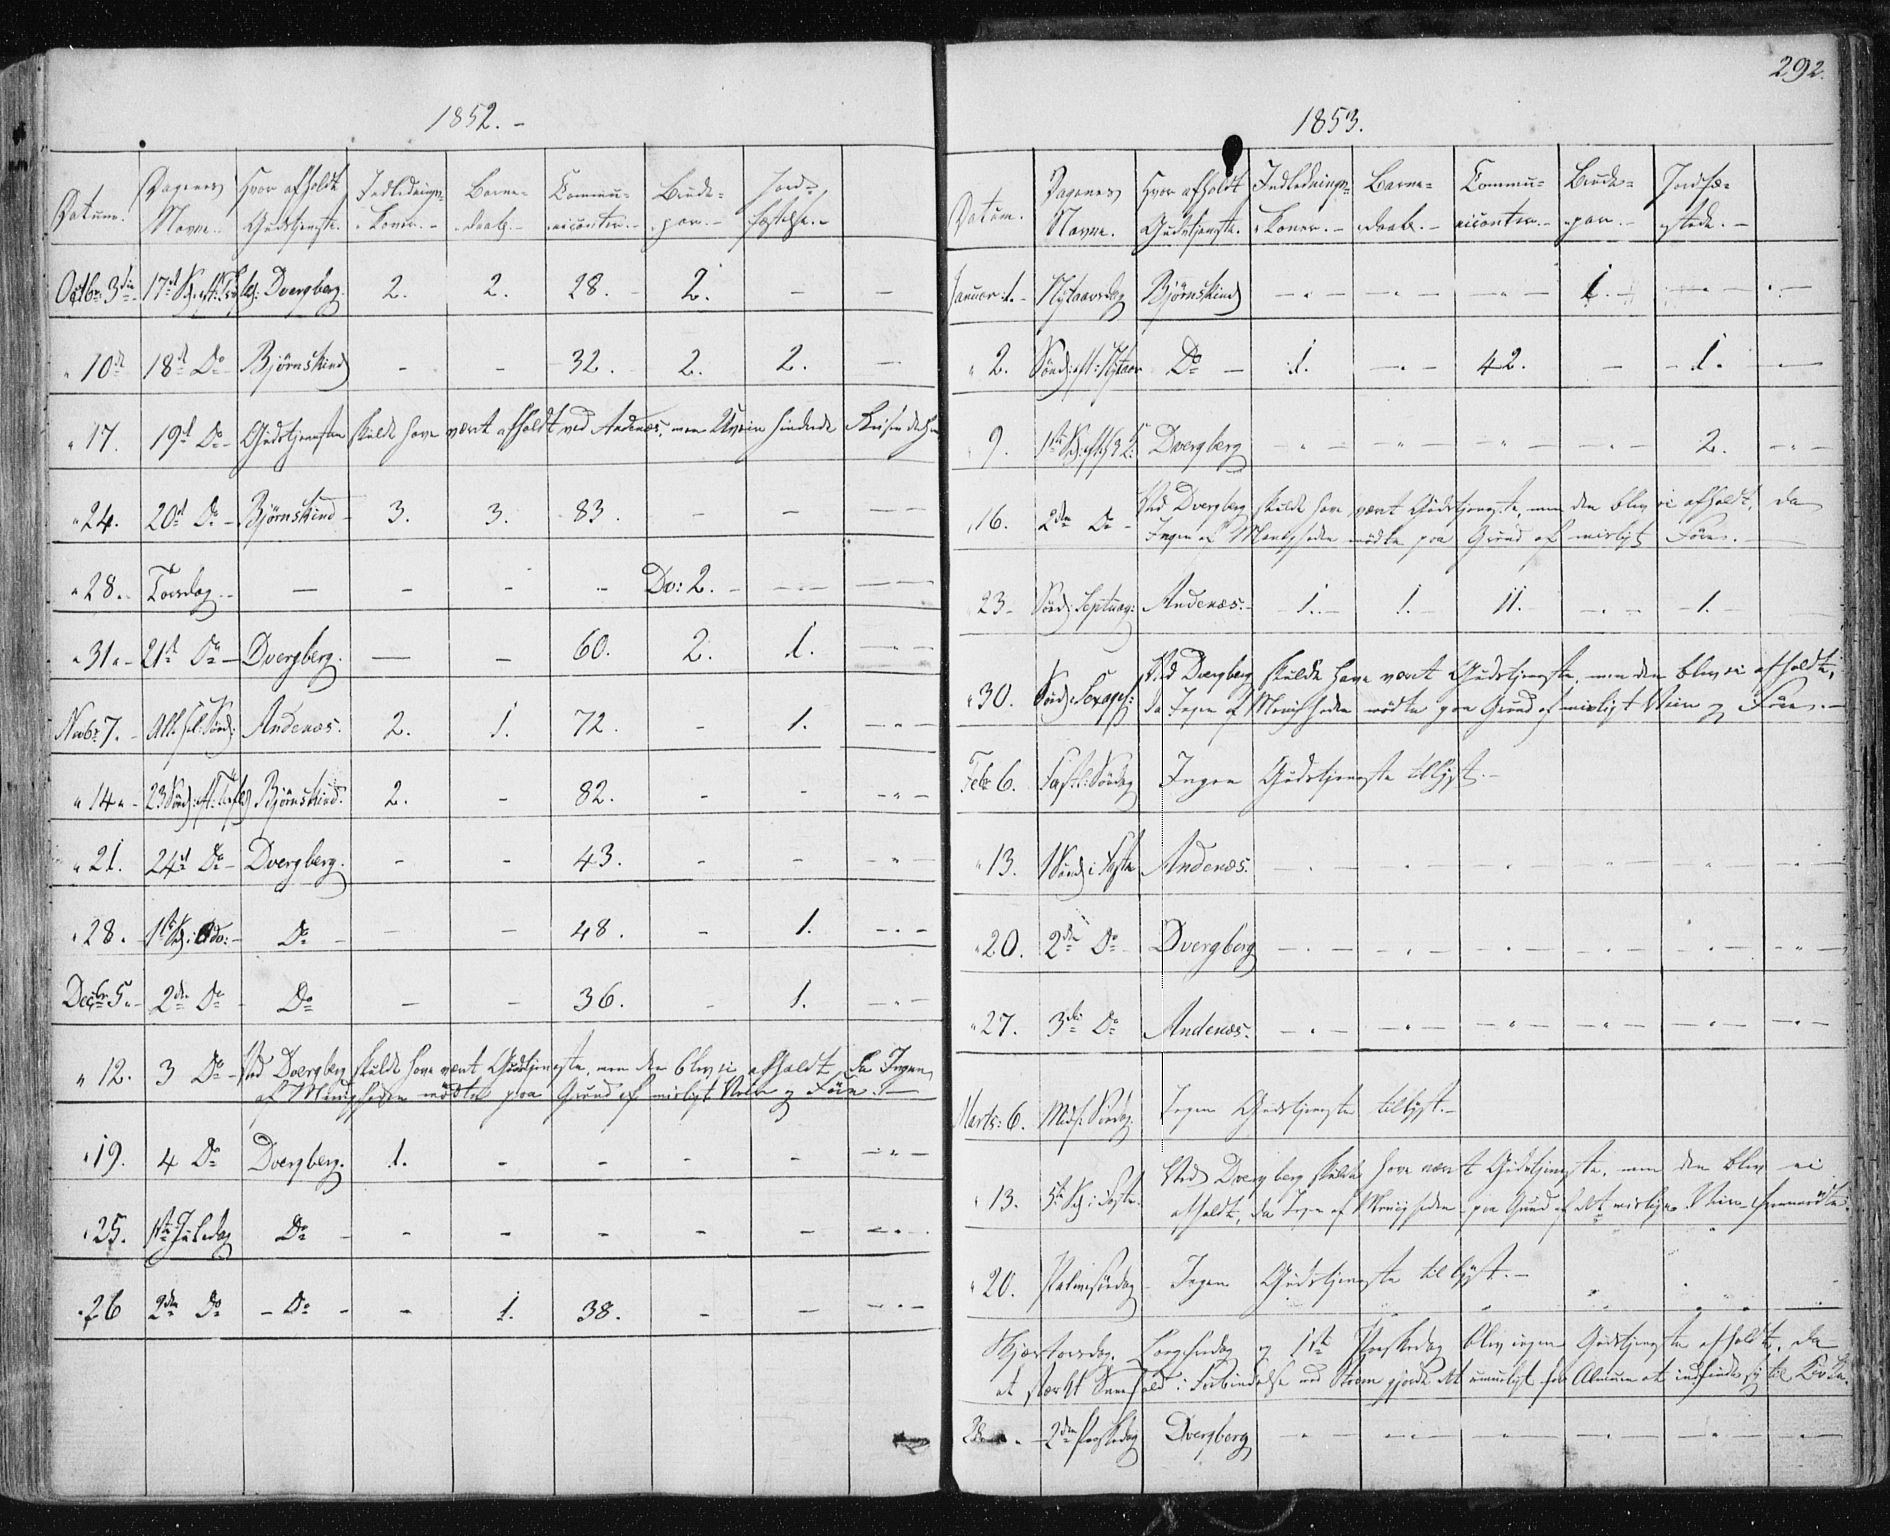 1852. -
Datum. Dagenes Navne. Hvor afholdt Gudstjeneste. Indlednings-Koner. - Barne-daab. - Commu-nicanter. - Brude-par. - Jords-fæstelse. -
Octbr. 3die 17de S. eft. Dvergberg. 2. 2. 28. - 2. - -
" 10de 18de Do Bjørnskind - - 32. 2. 2. -
" 17. 19de Do - Gudstjenesten skulde have været afholdt ved Andenæs, men Uveir hindrede Reisen
" 24. 20de Do - Bjørnskind - 3. 3. 83. - - - -
" 28. - Torsdag - - - - - Do: 2. - - - - -
" 31 " - 21de Do - Dvergberg. - - 60. 2. 1. - " -
Novbr 7. - All. Sønd: Andenæs. 2. 1. 72. - 1. - " -
" 14 " - 23 Sønd: Bjørnskind. 2. - 82. - - - " -
" 21. 24de Do - Dvergberg. - - 43. - - - " -
" 28. - 1ste S. i Adv: - Do - - - 48. - 1. - " -
Decbr 5. - 2den Do - Do - - 36. - 1. - " -
" 12. 3 Do - Ved Dvergberg skulde have været Gudstjeneste, men den blev ei afholdt, da Ingen
af Menigheden mødte paa Grund af misligt Veir og Føre. -
" 19. 4 Do Dvergberg. 1. - - - - - " -
" 25. 1ste Juledag Do - - - - - - " -
" 26 2den Do - Do - - 1. 38. - - - " -
292.
1853.
Datum. Dagenes Navne. Hvor afholdt Gudstjeneste. Indlednings-Koner. - Barne-daab. - Commu-nicanter. - Brude-par. - Jordfæ-stede. -
Januar 1. - Nytaarsdag Bjørnskind - " - - " - - " - 1. - - " - - " -
" 2. Sønd: eft: Nytaar Do - 1. - " - 42. - - 1. - -
" 9. 1ste S. eft. Dvergberg - " - - " - - " - - " - 2. - " -
" 16. 2den Do - Ved Dvergberg skulde have været Gudstjeneste, men den blev ei afholdt, da
Ingen af Menigheden mødte paa Grund af misligt Føre. -
" 23 - Sønd: Septuag: Andenæs. - 1. - 1. 11. - " - - 1. -
" 30. Sønd: Sexages: Ved Dvergberg skulde have været Gudstjeneste, men den blev ei afholdt,
da Ingen af Menigheden mødte paa Grund af misligt Veir og Føre. -
Febr 6. Fastl: Søndag Ingen Gudstjeneste tillyst. -
" 13. 1 Sønd i Faste Andenæs. - " - - " - - " - - " - " - " -
" 20. 2den Do - Dvergberg - " - - " - - " - - " - " - - " -
" 27. 3die Do Andenæs. - " - - " - - " - - " - - " - - " -
Marts: 6. Midf. Søndag. Ingen Gudstjeneste tillyst. -
" 13. 5te S. i Faste. Ved Dvergberg skulde have været Gudstjeneste, men den blev ei
afholdt, da Ingen af Menigheden paa Grund af det mislige Veir fremmødte.
" 20. Palmesøndag - Ingen Gudstjeneste tillyst. -
Skjærtorsdag, Langfredag og 1ste Paaskedag blev ingen Gudstjeneste afholdt, da
et stærkt Snefald i Forbindelse med Storm gjorde det umuligt for Almuen at indfinde sig til Kirke.
28 " - 2den Paaskedag Dvergberg - " - - " - - " - - " - - " - - " -